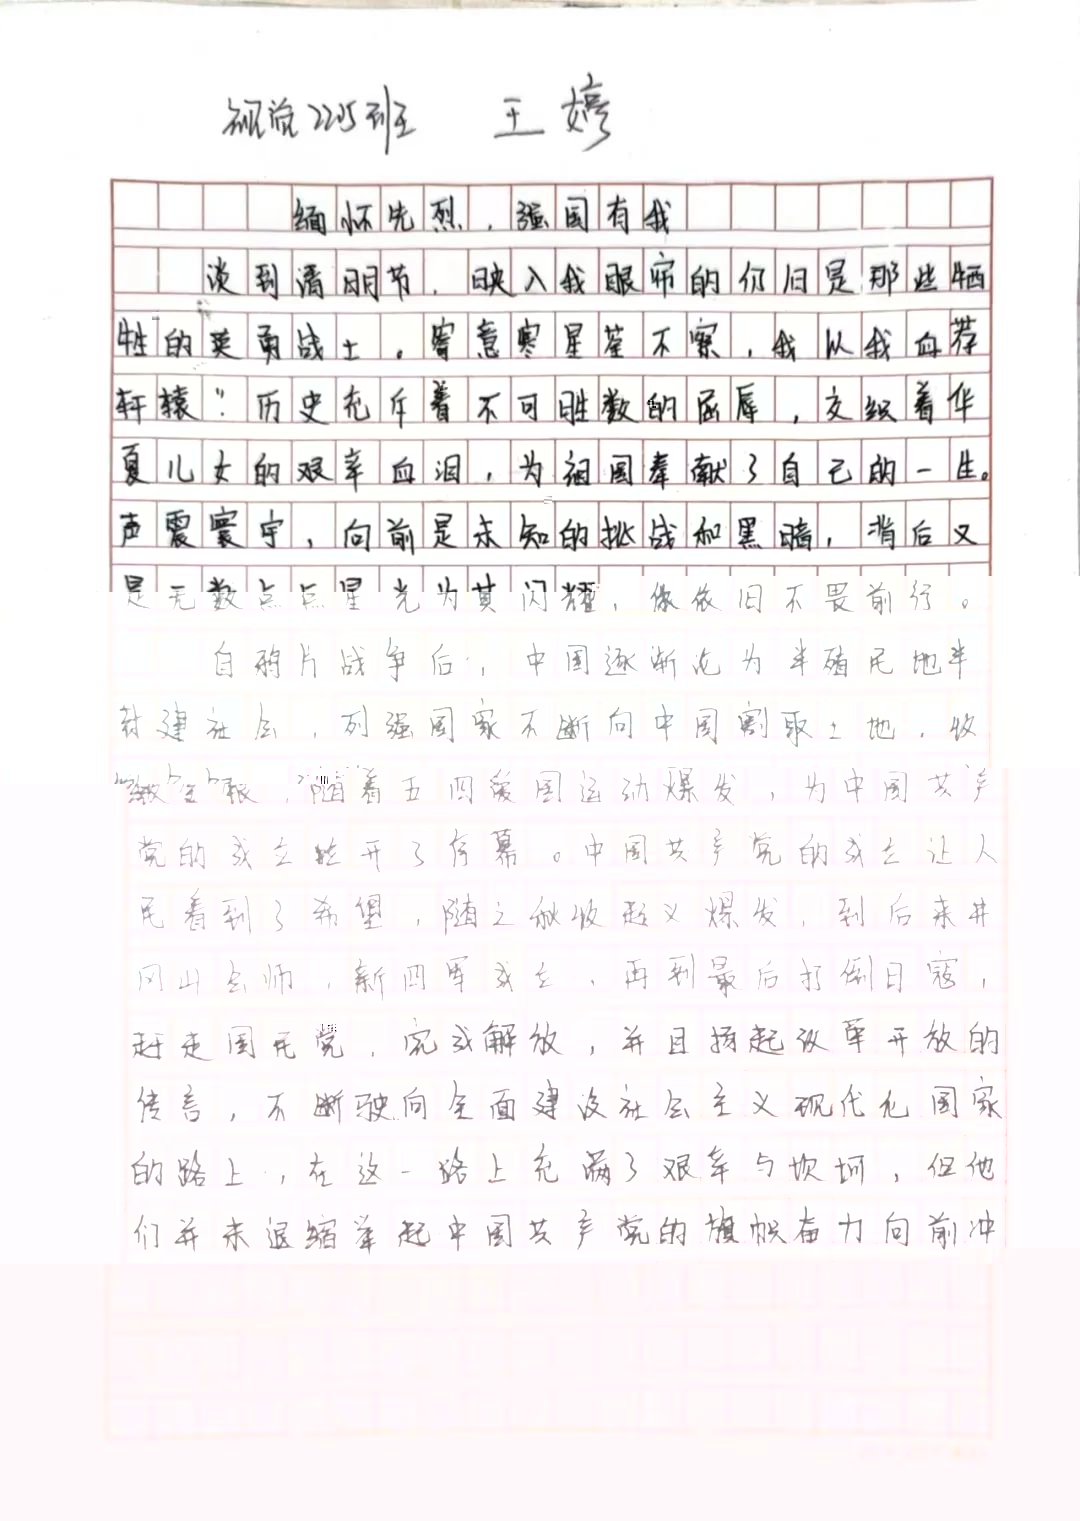 视觉2215班 王婷
缅怀先烈，强国有我
谈到清明节，映入我眼帘的仍旧是那些牺
牲的英勇战士。寄意寒星荃不察，我以我血荐
轩辕"历史充斥着不可胜数的屈辱，交织着华
夏儿女的艰辛血泪，为祖国奉献了自己的一生。
声震寰宇，向前是未知的挑战和黑暗，背后又
是无数点点星光为其闪耀，像依旧不畏前行。
自鸦片战争后，中国逐渐沦为半殖民地半
封建社会，列强国家不断向中国割取土地，收
随着五四爱国运动爆发，为中国共产
党的成立拉开了序幕。中国共产党的成立让人
民看到了希望，随之秋收起义爆发，到后来井
冈山会师，新四军成立，再到最后打倒日寇，
赶走国民党，完成解放，并且扬起改革开放的
传言，不断驶向全面建设社会主义现代化国家
的路上，在这一路上充满了艰辛与坎坷，但他
们并未退缩举起中国共产党的旗帜奋力向前冲